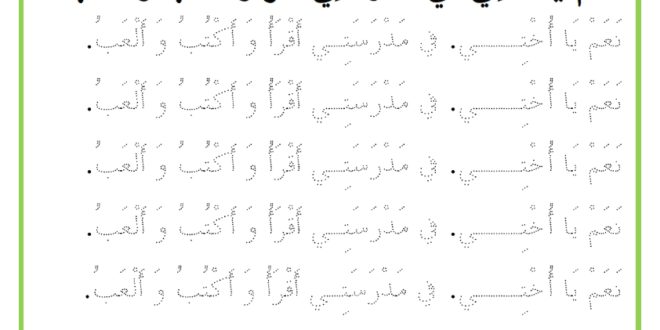 نَعَمْ يَا أُخْتِي. في مَدْرَسَتِي أَقْرَأُ وَ أَكْتُبُ وَ أَلْعَبُ.
نَعَمْ يَا أُخْتِي. في مَدْرَسَتِي أَقْرَأُ وَ أَكْتُبُ وَ أَلْعَبُ.
نَعَمْ يَا أُخْتِي. في مَدْرَسَتِي أَقْرَأُ وَ أَكْتُبُ وَ أَلْعَبُ.
نَعَمْ يَا أُخْتِي. في مَدْرَسَتِي أَقْرَأُ وَ أَكْتُبُ وَ أَلْعَبُ.
نَعَمْ يَا أُخْتِي. في مَدْرَسَتِي أَقْرَأُ وَ أَكْتُبُ وَ أَلْعَبُ.